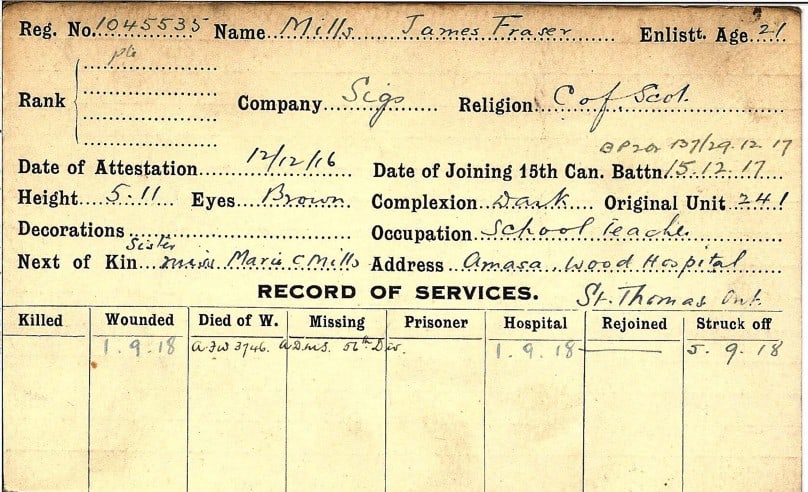 Reg. No. 1045535 Name Mills James Fraser Enlistt. Age 21
pte
Rank Company Sigs Religion C of Scot.
137/29.12.17
Date of Attestation 12/12/16 Date of Joining 15th Can. Battn 15.12.17
Height 5-11 Eyes Brown Complexion Dark Original Unit 241
Decorations Occupation School Teacher
Sister
Next of Kin Miss Marie C Mills Address Amasa Wood Hospital
RECORD OF SERVICES. St. Thomas Ont.
Killed Wounded Died of W. Missing Prisoner Hospital Rejoined Struck off
1.9.18 A.F.W 3746. A.D.M.S. 56th Div. 1.9.18 5.9.18